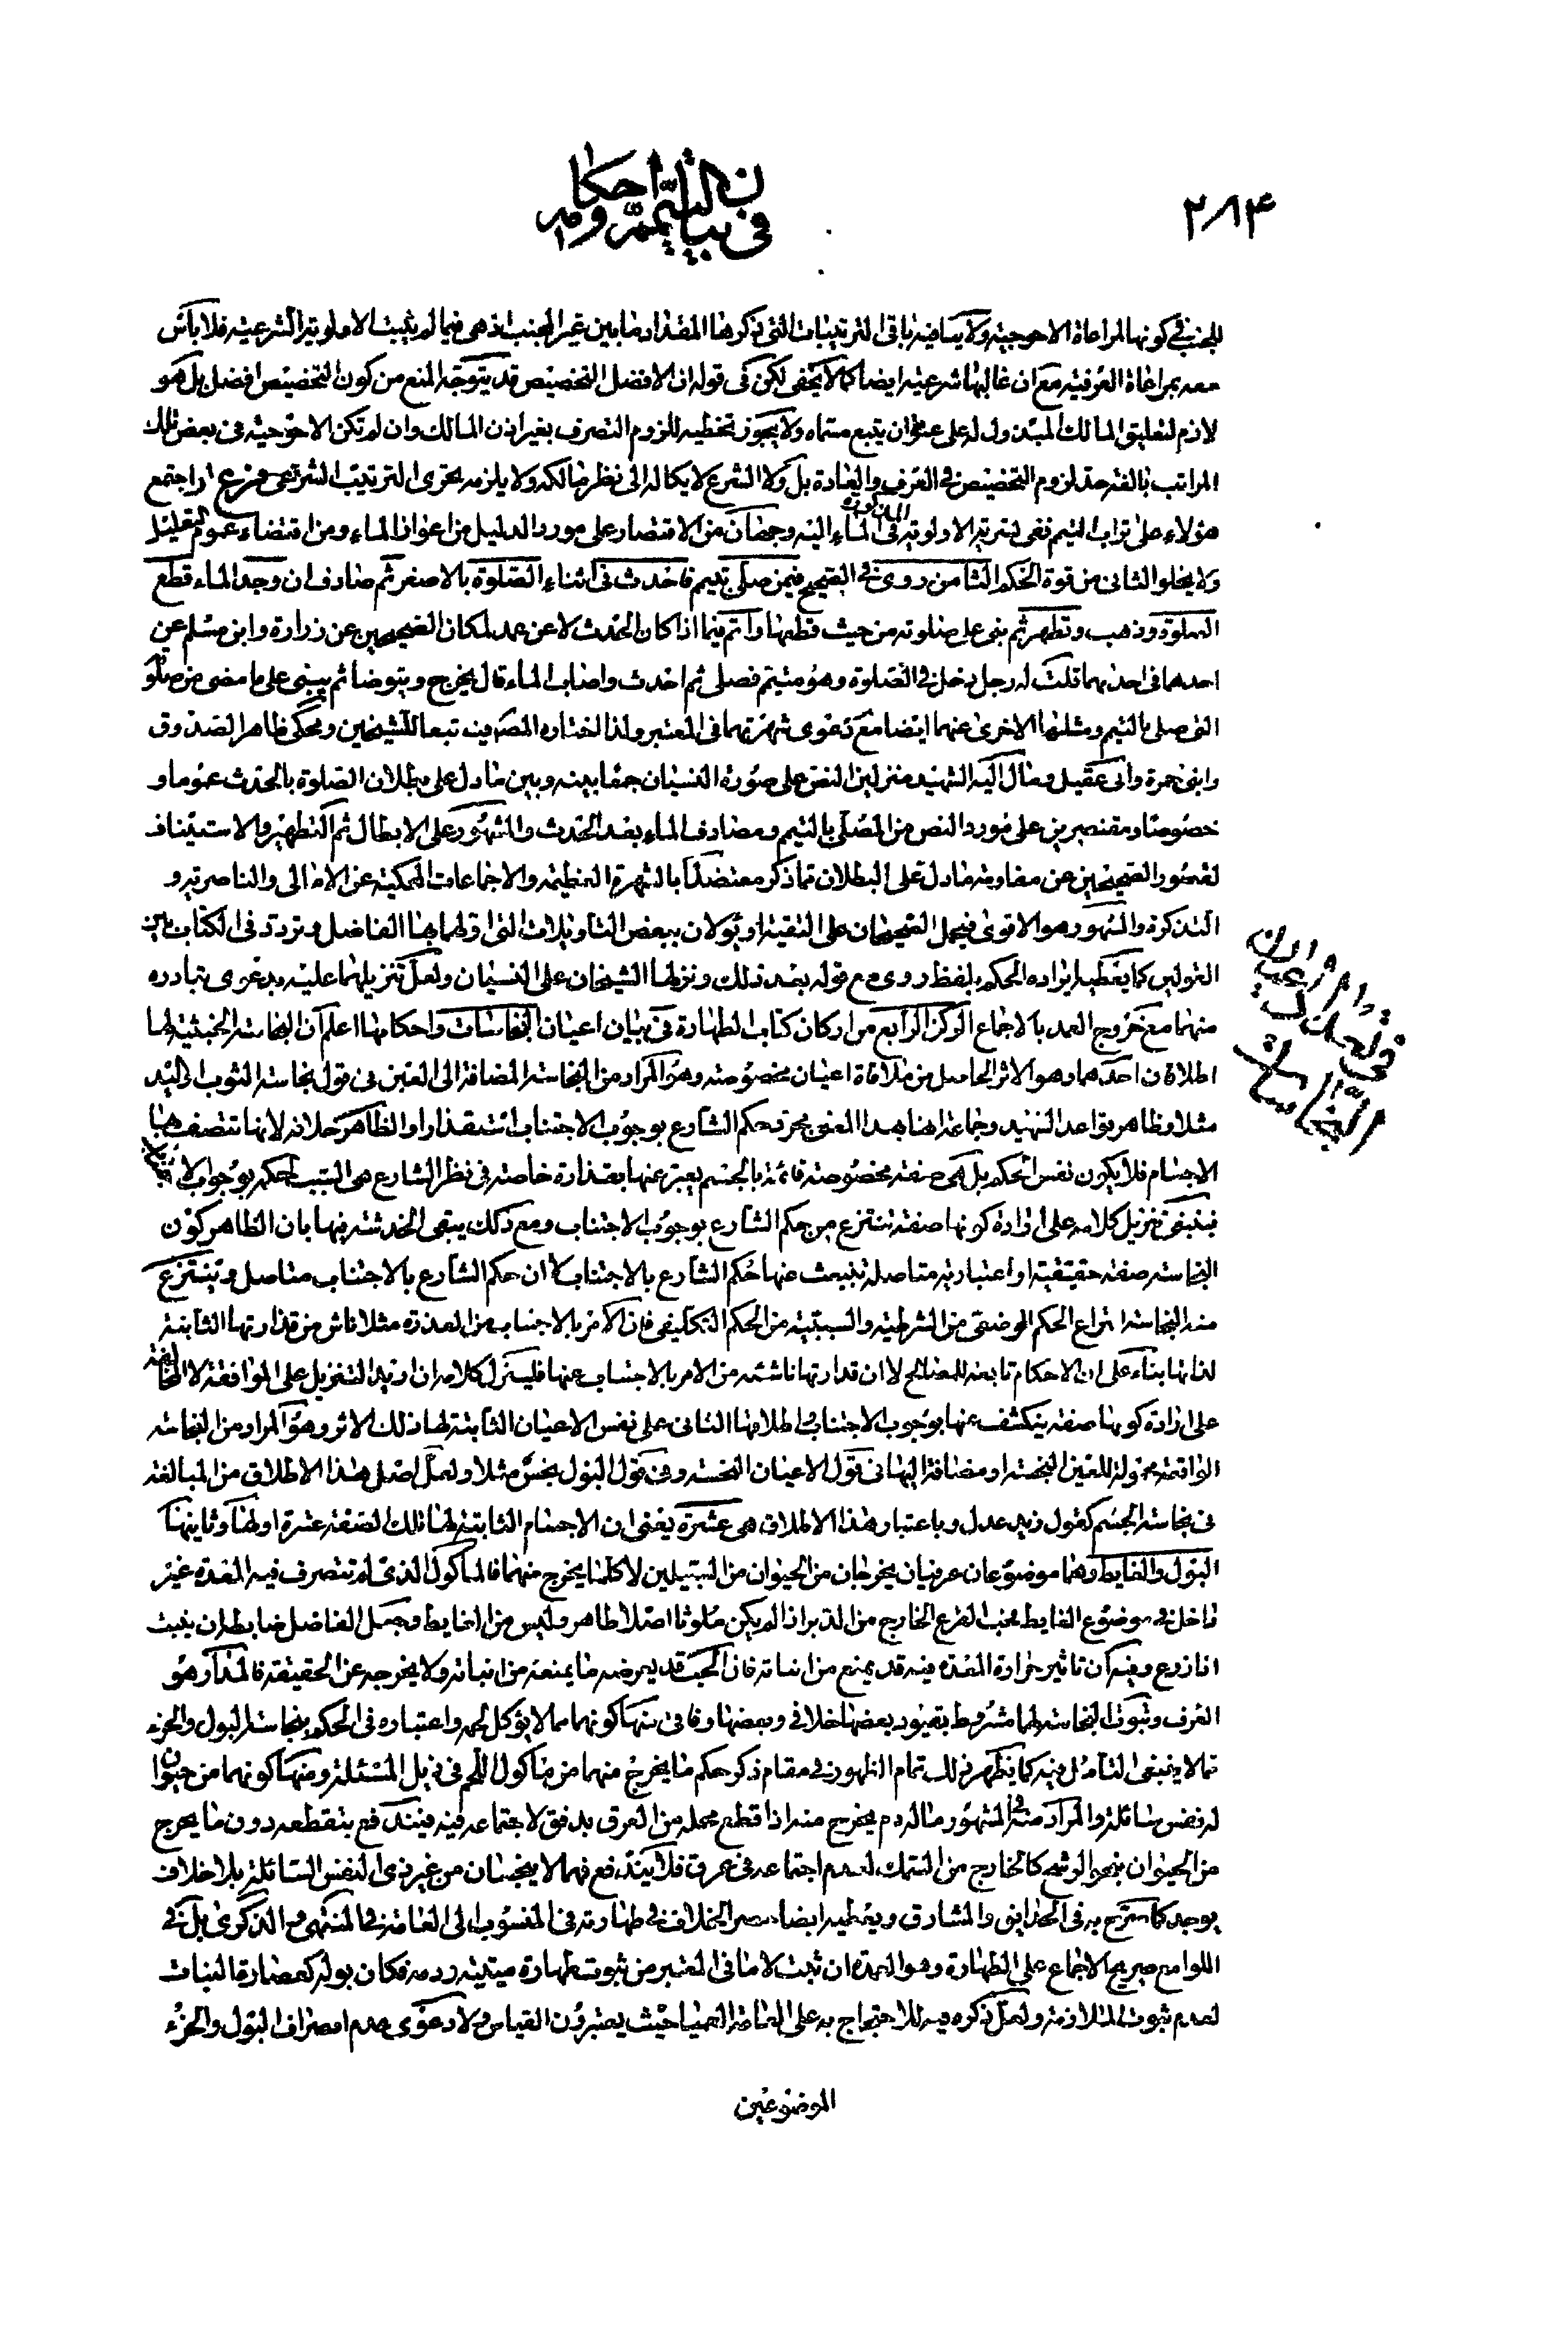 في بيان احكام التيمم
٢٨٤
للجنب في كونها لمراعاة الاحوجية ولا ينافيه باقى الترتيبات التى ذكرها المقداد ما بين غير الجنب اذ هى فيما لم يثبت الاولوية الشرعية فلا باس
معه بمراعاة العرفية مع ان غالبها شرعية ايضا كما لا يخفى لكن في قوله ان الافضل التخصيص قد يتوجه المنع من كون التخصيص افضل بل هو
لازم لتعليق المالك المبذول له على عنوان يتبع مسماه ولا يجوز تخطيه للزوم التصرف بغير اذن المالك وان لم تكن الاحوجية في بعض تلك
المراتب بالغة حد لزوم التخصيص في العرف والعادة بل ولا الشرع لايكاله الى نظر مالكه ولا يلزمه تحرى الترتيب الشرعى فرع اذا اجتمع
هؤلاء على تراب التيمم ففى تسرية الاولوية في الماء اليه وجهان من الاقتصار على مورد الدليل من اعواز الماء ومن اقتضاء عموم التعليل
ولا يخلو الثانى من قوة الحكم الثامن روى في الصحيح فيمن صلى بتيمم فاحدث في اثناء الصلوة بالاصغر ثم صادف ان وجد الماء قطع
الصلوة وذهب وتطهر ثم بنى على صلوته من حيث قطعها واتم فيما اذا كان الحدث لا عن عمد لمكان الصحيحين عن زرارة وابن مسلم عن
احدهما في احديهما قلت له رجل دخل في الصلوة وهو متيمم فصلى ثم احدث واصاب الماء قال يخرج ويتوضا ثم يبنى على ما مضى من صلوته
التى صلى بالتيمم ومثلها الاخرى عنهما ايضا مع دعوى شهرتهما في المعتبر ولذا اختاره المصنف تبعا للشيخين ومحكى ظاهر الصدوق
وابنى حمزة وابى عقيل ومال اليه الشهيد منزلين النص على صورة النسيان جمعا بينه وبين ما دل على بطلان الصلوة بالحدث عموما و
خصوصا ومقتصرين على مورد النص من المصلى بالتيمم ومصادف الماء بعد الحدث والمشهور على الابطال ثم التطهير والاستيناف
لقصور الصحيحين عن مقاومة ما دل على البطلان مما ذكر معتضدا بالشهرة العظيمة والاجماعات المحكية عن الامالى والناصرية و
التذكرة والمشهور هو الاقوى فيحمل الصحيحان على التقية او يؤلان ببعض التاويلات التى اولهما بها الفاضل وتردد في الكتاب بين
القولين كما يعطيه ايراده الحكم بلفظ روى مع قوله بعد ذلك ونزلها الشيخان على النسيان ولعل تنزيلهما عليه بدعوى تبادره
منهما مع خروج العمد بالاجماع الركن الرابع من اركان كتاب الطهارة في بيان اعيان النجاسات واحكامها اعلم ان النجاسة الخبثية لها
اطلاقان احدهما وهو الاثر الحاصل من ملاقاة اعيان مخصوصة وهو المراد من النجاسة المضافة الى العين في قول نجاسة الثوب او اليد
مثلا وظاهر قواعد الشهيد وجماعة انها بهذا المعنى مجرد حكم الشارع بوجوب الاجتناب استقذارا والظاهر خلافه لانها تتصف بها
الاجسام فلا يكون نفس الحكم بل هى صفة مخصوصة قائمة بالجسم يعبر عنها بقذارة خاصة في نظر الشارع هى السبب لحكمه بوجوب الاجتناب
فينبغى تنزيل كلامه على ارادة كونها صفة تنتزع من حكم الشارع بوجوب الاجتناب ومع ذلك يبقى الخدشة فيها بان الظاهر كون
النجاسة صفة حقيقية او اعتبارية متاصلة ينبعث عنها حكم الشارع بالاجتناب لا ان حكم الشارع بالاجتناب متاصل وينتزع
منه النجاسة انتزاع الحكم الوضعى من الشرطية والسببية من الحكم التكليفى فان الامر بالاجتناب من العذرة مثلا ناش من قذارتها الثابتة
لذاتها بناء على ان الاحكام تابعة للمصالح لا ان قذارتها ناشئة من الامر بالاجتناب عنها فلينزل كلامه ان اريد التنزيل على الموافقة لا المخالفة
على ارادة كونها صفة ينكشف عنها بوجوب الاجتناب و اطلاقها الثانى على نفس الاعيان الثابتة لها ذلك الاثر وهو المراد من النجاسة
الواقعة محمولة للعين النجسة او مضافة اليها في قول الاعيان النجسة وفي قول البول نجس مثلا ولعل اصل هذا الاطلاق من المبالغة
في نجاسة الجسم كقول زيد عدل وباعتبار هذا الاطلاق هى عشرة يعنى ان الاجسام الثابتة لها تلك الصفة عشرة اولها وثانيها
البول والغايط وهما موضوعان عرفيان يخرجان من الحيوان من السبيلين لا كلما يخرج منهما فالماكول الذى لم تتصرف فيه المعدة غير
داخل في موضوع الغايط فحب القرع الخارج من الدبر اذا لم يكن ملوثا اصلا طاهر وليس من الغايط وجعل الفاضل ضابطه ان ينبت
اذا زرع وفيه ان تاثير حرارة المعدة فيه قد يمنع من انباته فان الحب قد يعرضه ما يمنعه من انباته ولا يخرجه عن الحقيقة فالمدار هو
العرف وثبوت النجاسة لهما مشروط بقيود بعضها خلافى وبعضها وفاقى منها كونهما مما لا يؤكل لحمه واعتباره في الحكم بنجاسة البول والخرء
مما لا ينبغى التامل فيه كما يظهر ذلك تمام الظهور في مقام ذكر حكم ما يخرج منهما من ماكول اللحم في ذيل المسئلة ومنها كونهما من حيوان
له نفس سائلة والمراد منه في المشهور ما له دم يخرج منه اذا قطع محله من العرق بدفق لاجتماعه فيه فيندفع بتقطعه دون ما يخرج
من الحيوان بنحو الرشح كالخارج من السمك لعدم اجتماعه في عرق فلا يندفع فهما لا ينجسان من غير ذى النفس السائلة بلا خلاف
يوجد كما صرح به في الحدائق والمشارق ويعطيه ايضا حصر الخلاف في طهارته في المنسوب الى العامة في المنتهى مع الذكرى بل في
اللوامع صريحا الاجماع على الطهارة وهو العمدة ان ثبت لا ما في المعتبر من ثبوت طهارة ميتته ودمه فكان بوله كعصارة النبات
لعدم ثبوت الملازمة ولعل ذكره فيه للاحتجاج به على العامة العميا حيث يعتبرون القياس ولا دعوى عدم انصراف البول والخرء
الموضوعين
النجاسات